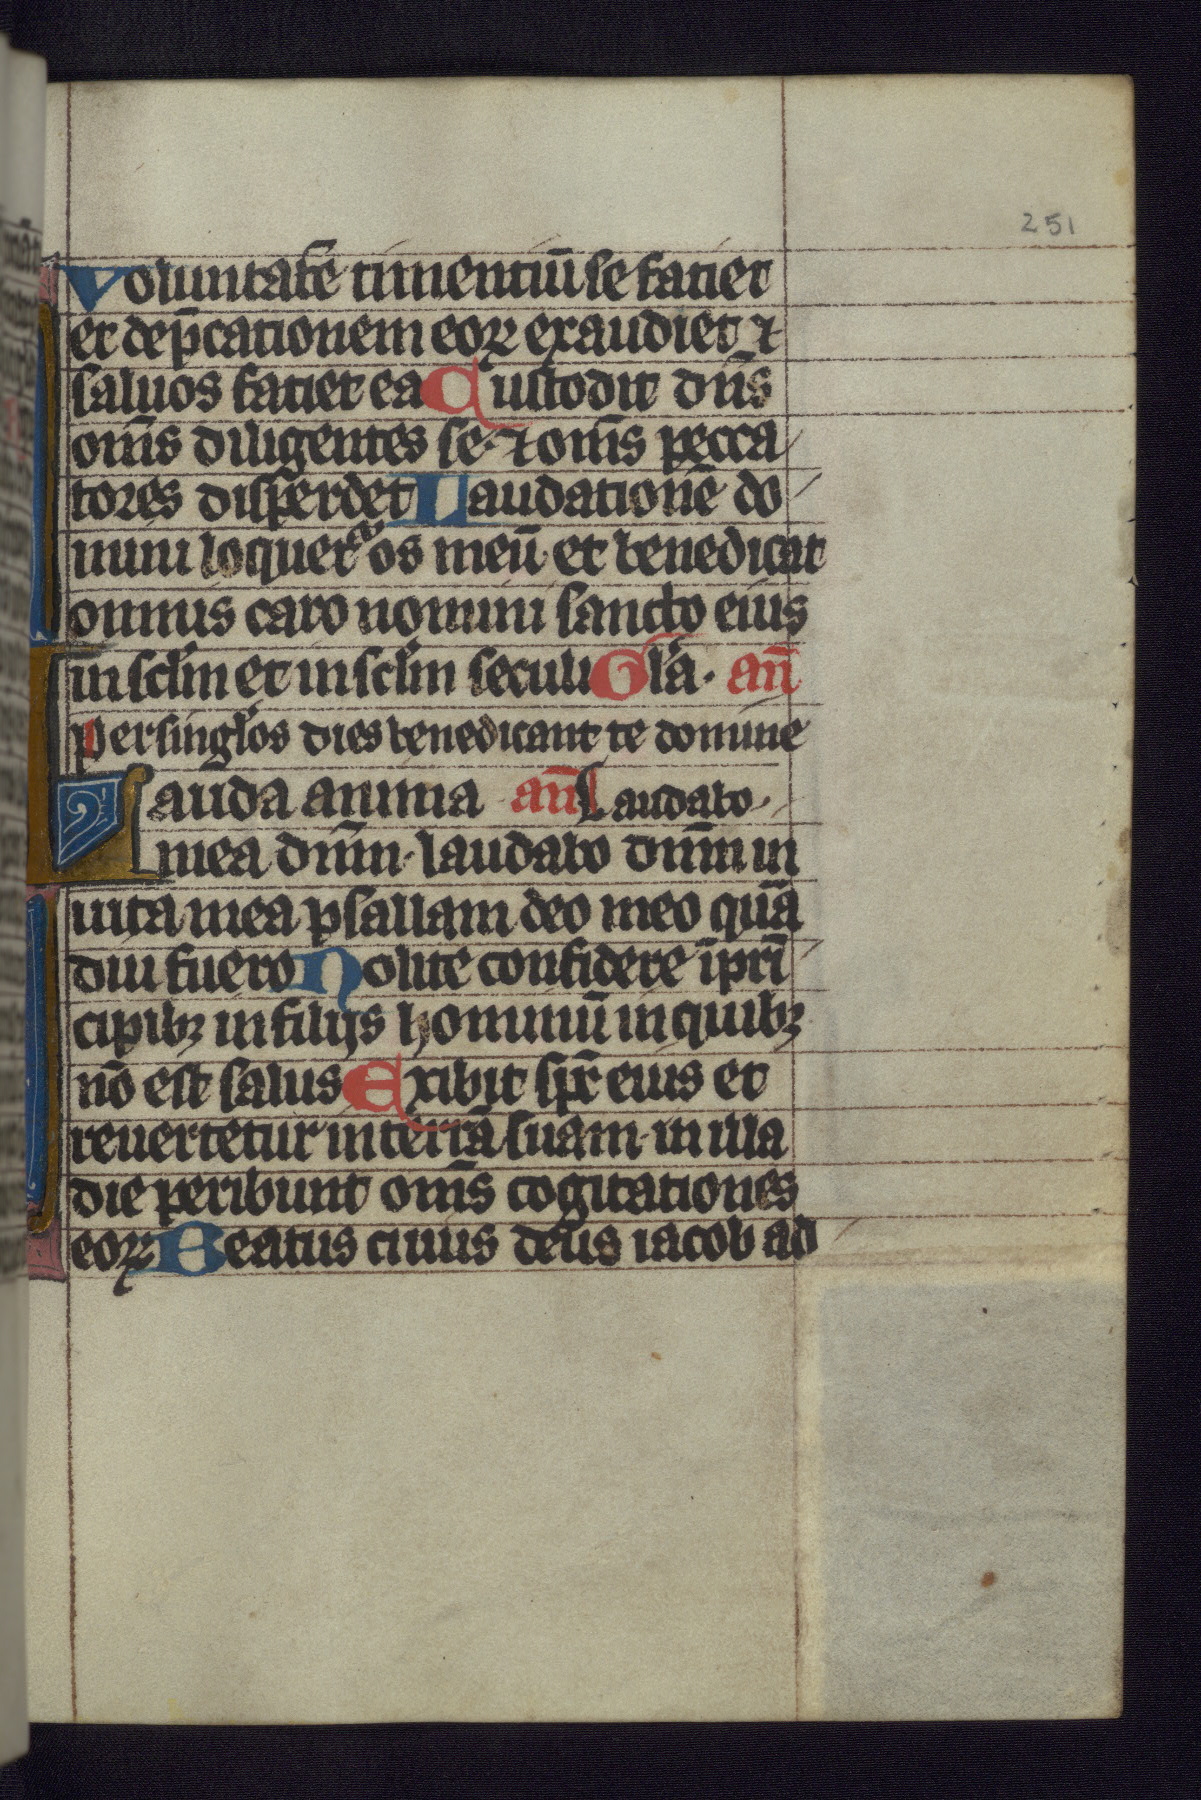 251
Voluntatē timentiū se faciet
et dep̄cationem eoꝝ exaudiet ⁊
saluos faciet ea Custodit dn̄s
om̄s diligentes se· ⁊ om̄s pecca
tores disperdet Laudationē do
mini loquetᵃ os meū· et benedicat
omnis caro nomini sancto eius
in sclm̄ et in sclm̄ seculi Gl̄a· an̄
Per singlos dies benedicant te domine
Lauda anima an̄ Laudabo
mea dn̄m· laudabo dn̄m in
uita mea psallam deo meo quā
diu fuero Nolite confidere ī prī
cipibꝫ in filijs hominū in quibꝫ
nō est salus Exibit spr̄ eius et
reuertetur in terrā suam· in illa
die peribunt om̄s cogitationes
eoꝝ Beatus cuius deus iacob ad